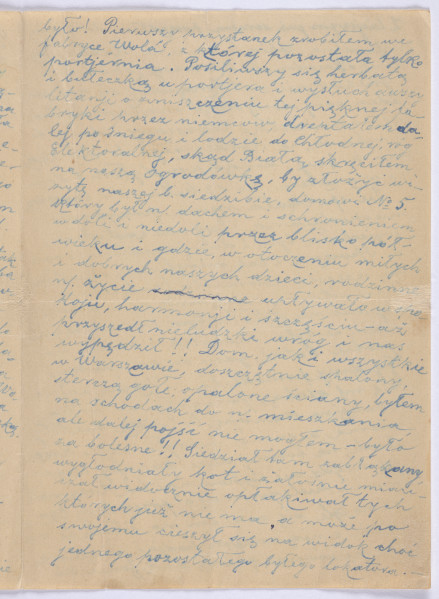 było! Pierwszy przystanek zrobiłem we
fabryce „Wola", z której pozostała tylko
portjernia. Posiliwszy się herbatą
i bułeczką u portjera i wysłuchawszy
litanji o zniszczeniu tej pięknej fa-
bryki przez niemców, drep
tałem da-
lej po śniegu i lodzie do Chłodnej, po
Elektoralnej, skąd Białą skręciłem
na naszą Ogrodówkę, by złożyć wi-
zytę naszej b. siedzibie, domowi № 5.
który był n. dachem i schronieniem
w doli i niedoli przez blisko pół
wieku i gdzie, w otoczeniu miłych
i dobrych naszych dzieci, rodzinne
n. życie upływało w spo-
koju, harmonji i szczęściu – aż
przyszedł nieludzki wróg i nas
wypędził!! Dom, jak i wszystkie
w Warszawie, doszczętnie spalony,
sterczą gołe, opalone ściany, byłem
na schodach do n. mieszkania
ale dalej pójść nie mogłem – było
za bolesne!! Siedział tam zabłąkany
wygłodniały kot i żałośnie miau-
czał widocznie opłakiwał tych
których już nie ma, a może po
swojemu cieszył się na widok choć
jednego pozostałego byłego lokatora. –